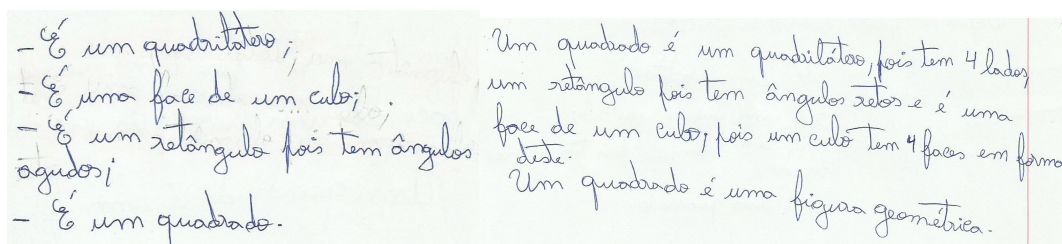 - É um quadrilátero;
- É uma face de um cubo;
- É um retângulo pois tem ângulos
agudos;
- É um quadrado.
Um quadrado é um quadrilátero, pois tem 4 lados,
um retângulo pois tem ângulos retos e é uma
face de um cubo, pois um cubo tem 4 faces em forma
deste.
Um quadrado é uma figura geométrica.